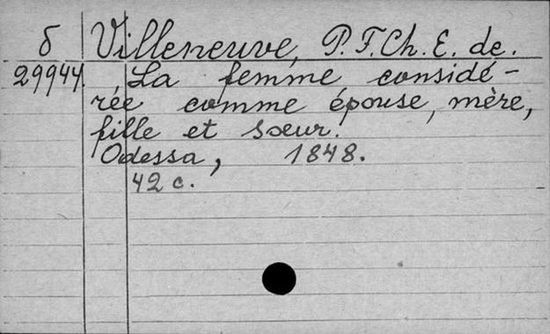 б Villeneuve, P. F. Ch. E. de.
29944. La femme considé-
rée comme épouse, mère,
fille et sœur.
Odessa, 1848.
42 c.